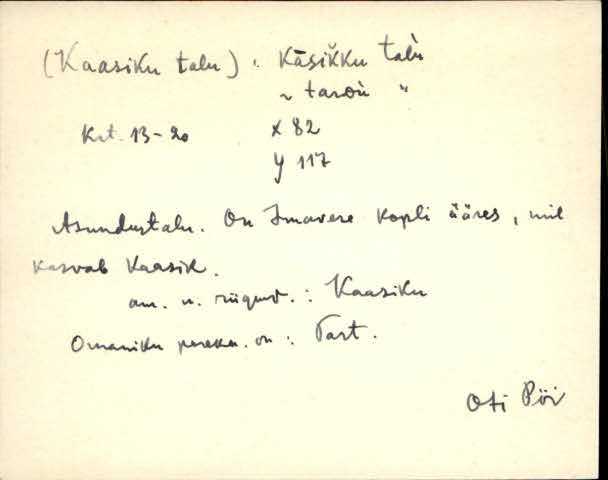 (Kaasiku talu) : Kāsikku talu
" taron "
Krt. 13-20 x 82
y 117
Asundustalu. On Imavere kopli ääres, mil
kasvab kaasik.
am. n. : Kaasiku
Omaniku pereku. on : Tart.
Oti Pöi